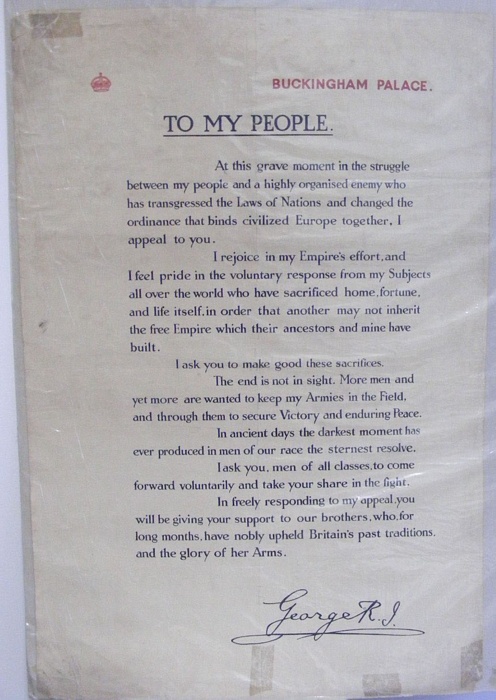 BUCKINGHAM PALACE.
TO MY PEOPLE.
At this grave moment in the struggle
between my people and a highly organised enemy who
has transgressed the Laws of Nations and changed the
ordinance that binds civilized Europe together, I
appeal to you.
I rejoice in my Empire's effort, and
I feel pride in the voluntary response from my Subjects
all over the world who have sacrificed home, fortune,
and life itself, in order that another may not inherit
the free Empire which their ancestors and mine have
built.
I ask you to make good these sacrifices.
The end is not in sight. More men and
yet more are wanted to keep my Armies in the Field,
and through them to secure Victory and enduring Peace.
In ancient days the darkest moment has
ever produced in men of our race the sternest resolve.
I ask you, men of all classes, to come
forward voluntarily and take your share in the fight.
In freely responding to my appeal, you
will be giving your support to our brothers, who, for
long months, have nobly upheld Britain's past traditions,
and the glory of her Arms.
George R.I.